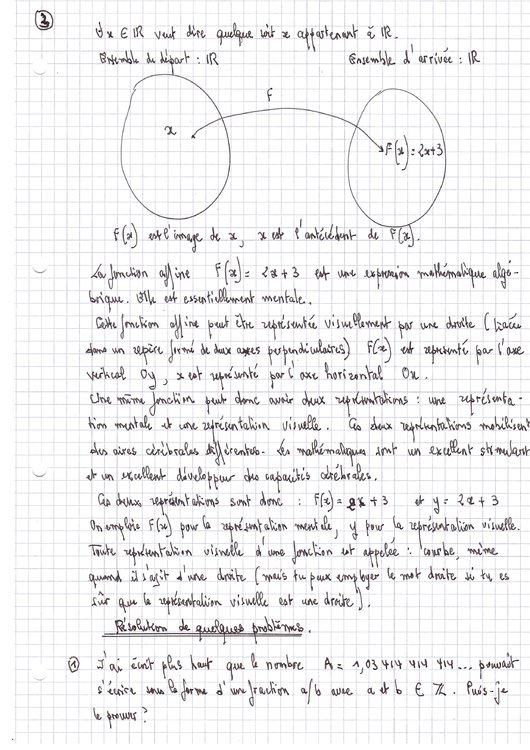 2
∀x ∈ IR veut dire quelque soit x appartenant à IR.
Ensemble de départ : IR Ensemble d'arrivée : IR
f
x
F(x) = 2x+3
F(x) est l'image de x, x est l'antécédent de F(x).
La fonction affine F(x) = 2x+3 est une expression mathématique algé-
brique. Elle est essentiellement mentale.
Cette fonction affine peut être représentée visuellement par une droite (tracée
dans un repère formé de deux axes perpendiculaires) F(x) est représenté par l'axe
vertical Oy, x est représenté par l'axe horizontal Ox.
Une même fonction peut donc avoir deux représentations : une représenta-
tion mentale et une représentation visuelle. Ces deux représentations mobilisent
des aires cérébrales différentes. Les mathématiques sont un excellent stimulant
et un excellent développeur des capacités cérébrales.
Ces deux représentations sont donc : F(x) = 2x+3 et y = 2x+3
On emploie F(x) pour la représentation mentale, y pour la représentation visuelle.
Toute représentation visuelle d'une fonction est appelée : courbe, même
quand il s'agit d'une droite (mais tu peux employer le mot droite si tu es
sûr que la représentation visuelle est une droite).
Résolution de quelques problèmes.
1 J'ai écrit plus haut que le nombre A = 1,03 414 414 414 ... pouvait
s'écrire sous la forme d'une fraction a/b avec a et b ∈ ℤ. Puis-je
le prouver ?